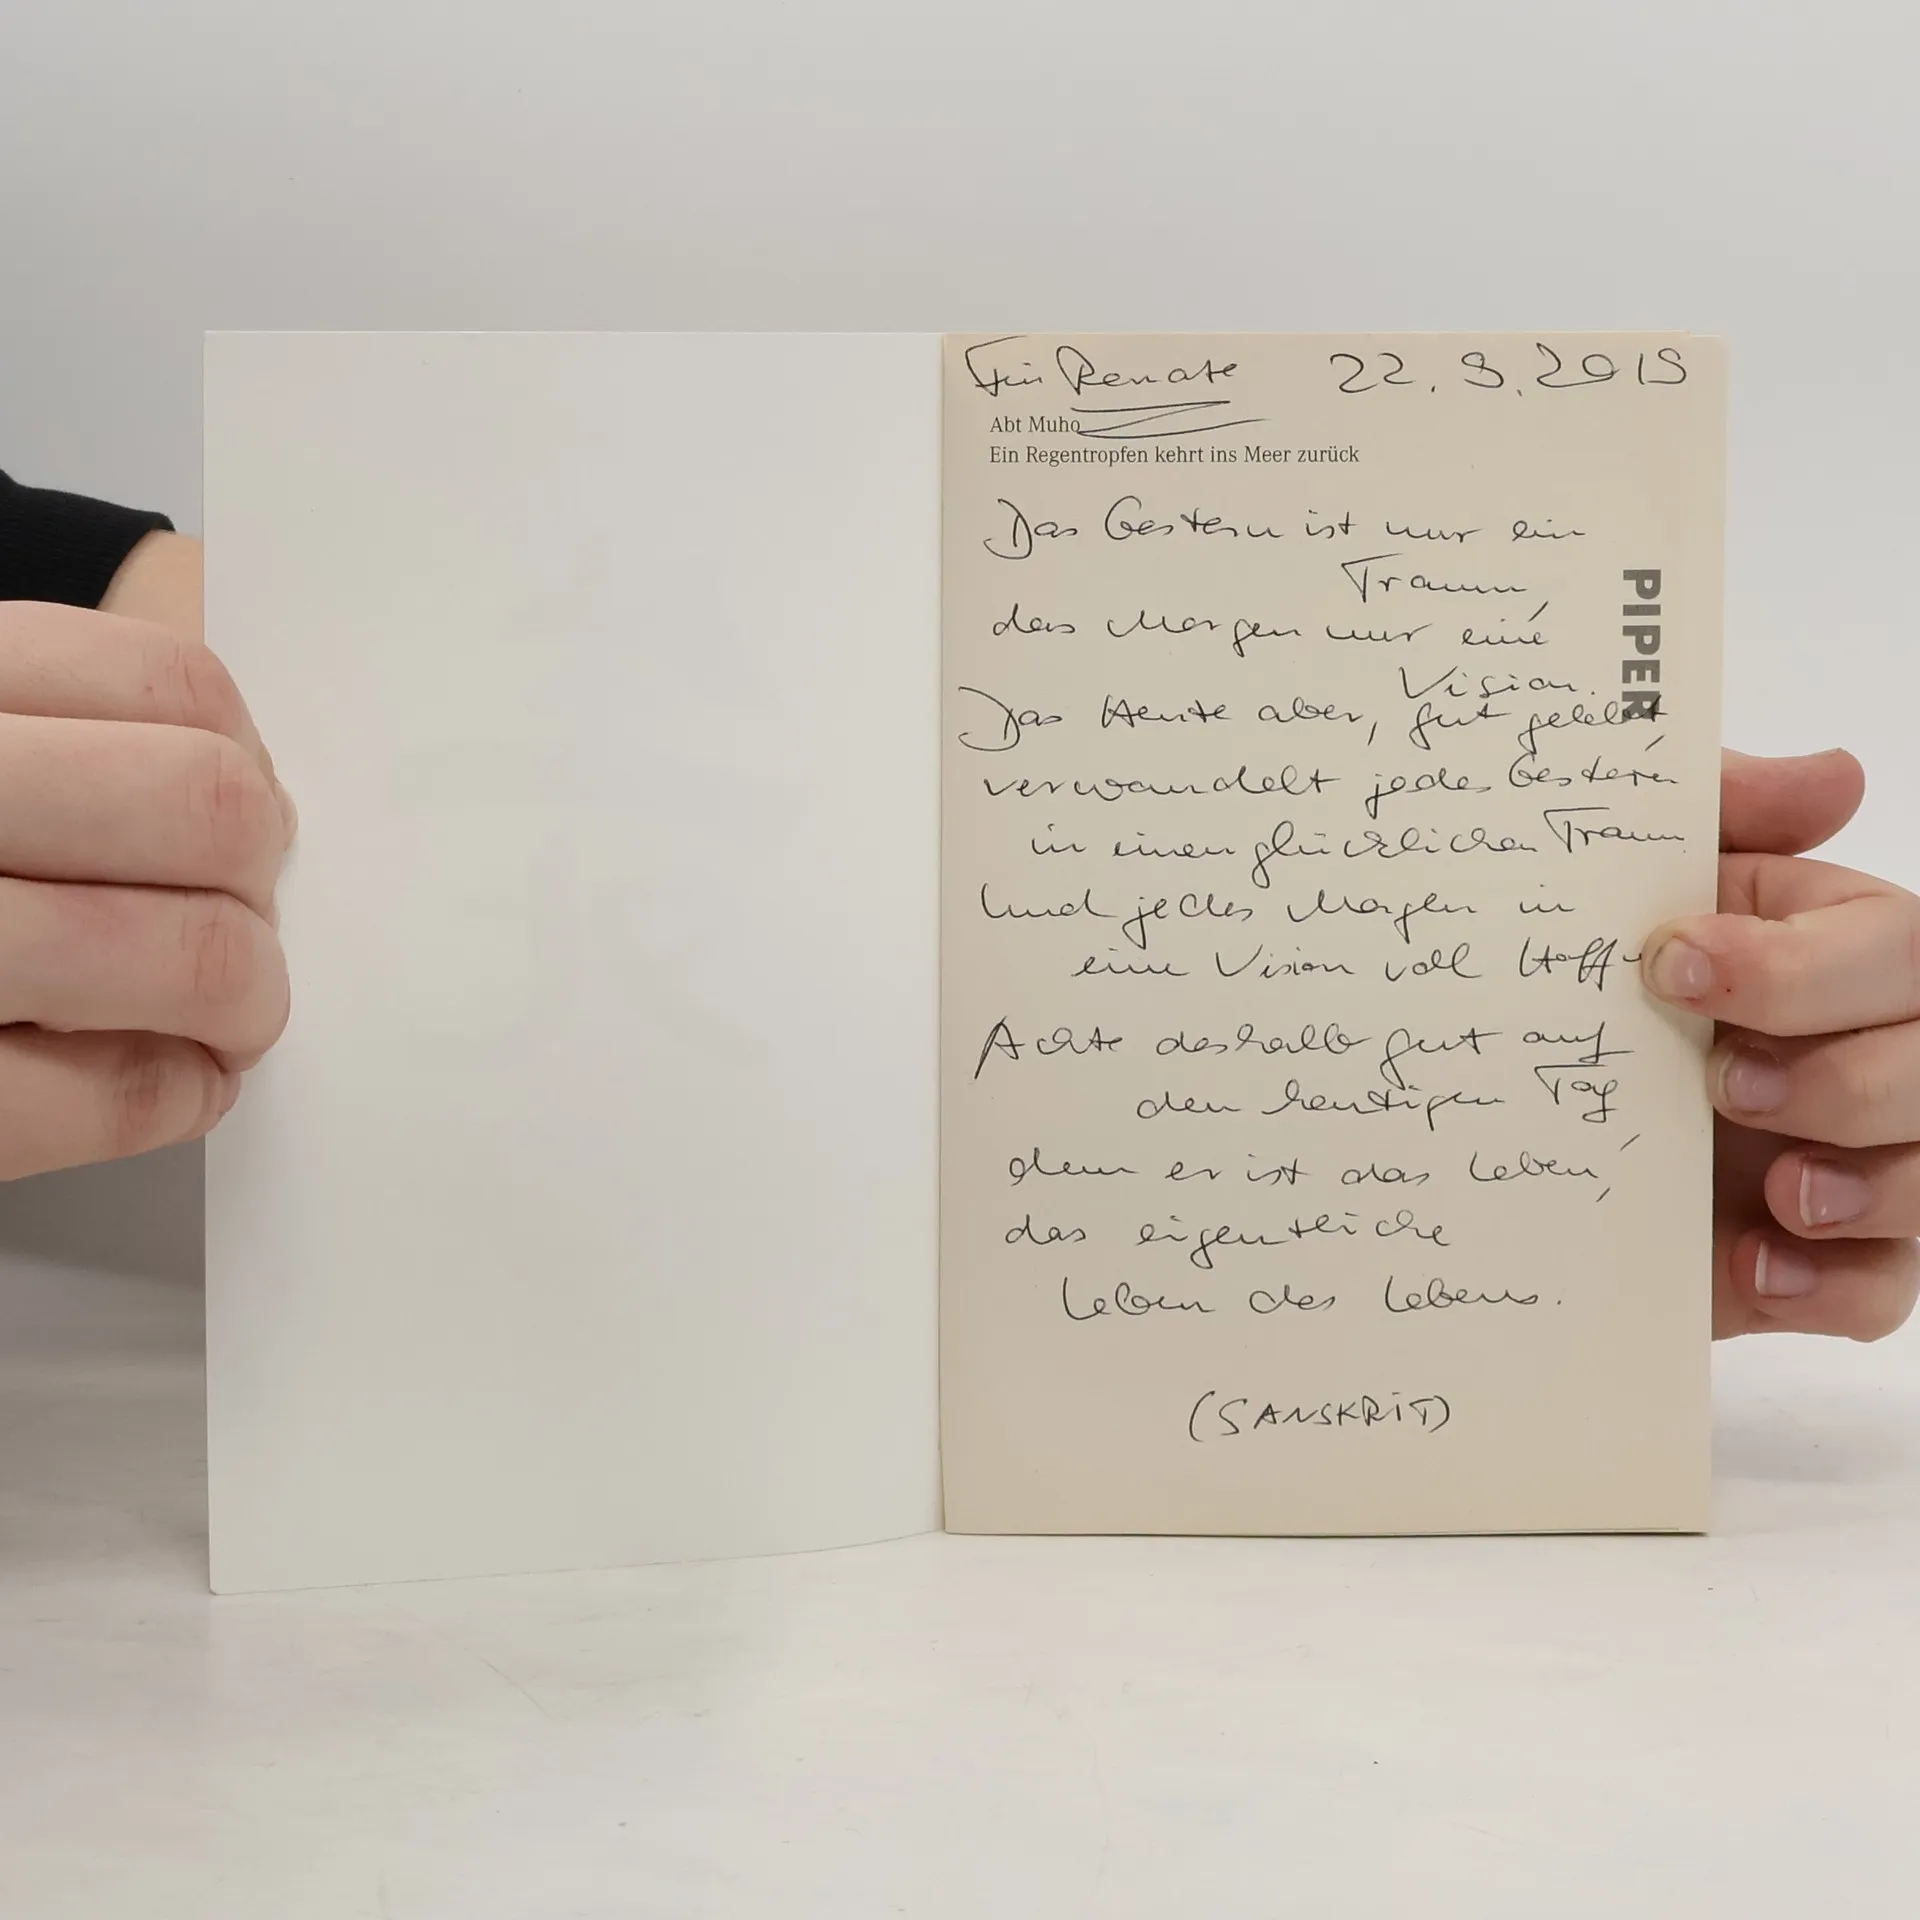 Für Renate 22.9.2019
Abt Muho
Ein Regentropfen kehrt ins Meer zurück
Das Gestern ist nur ein
Traum,
das Morgen nur eine
Vision.
PIPER
Das Heute aber, gut gelebt,
verwandelt jedes Gestern
in einen glücklichen Traum
Und jedes Morgen in
eine Vision voll
Achte deshalb gut auf
den heutigen Tag,
denn er ist das Leben,
das eigentliche
Leben des Lebens.
(SANSKRIT)